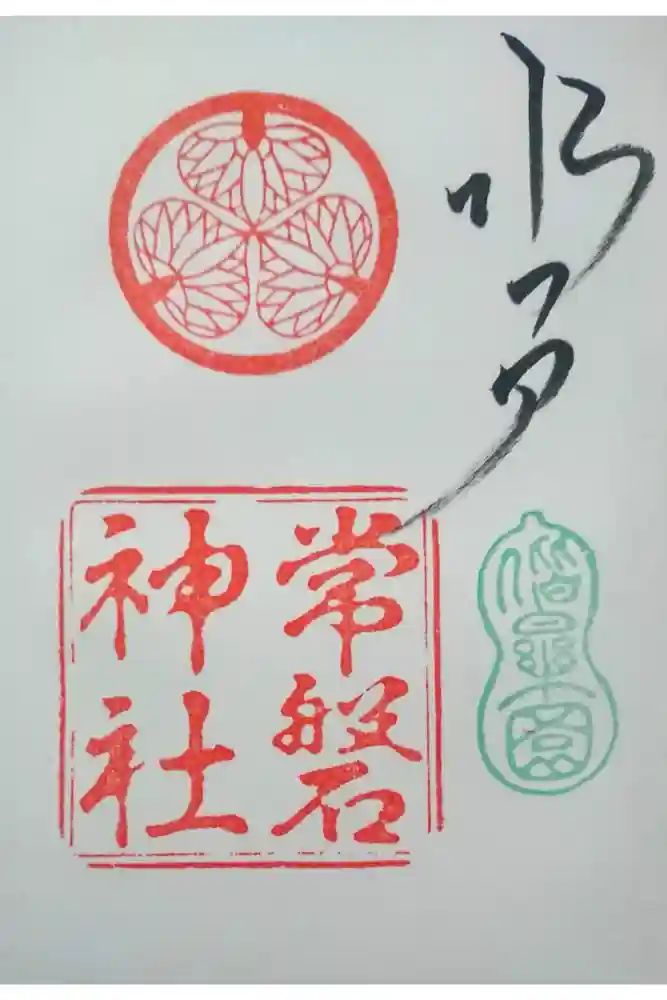 水戸
偕樂園
常磐
神社